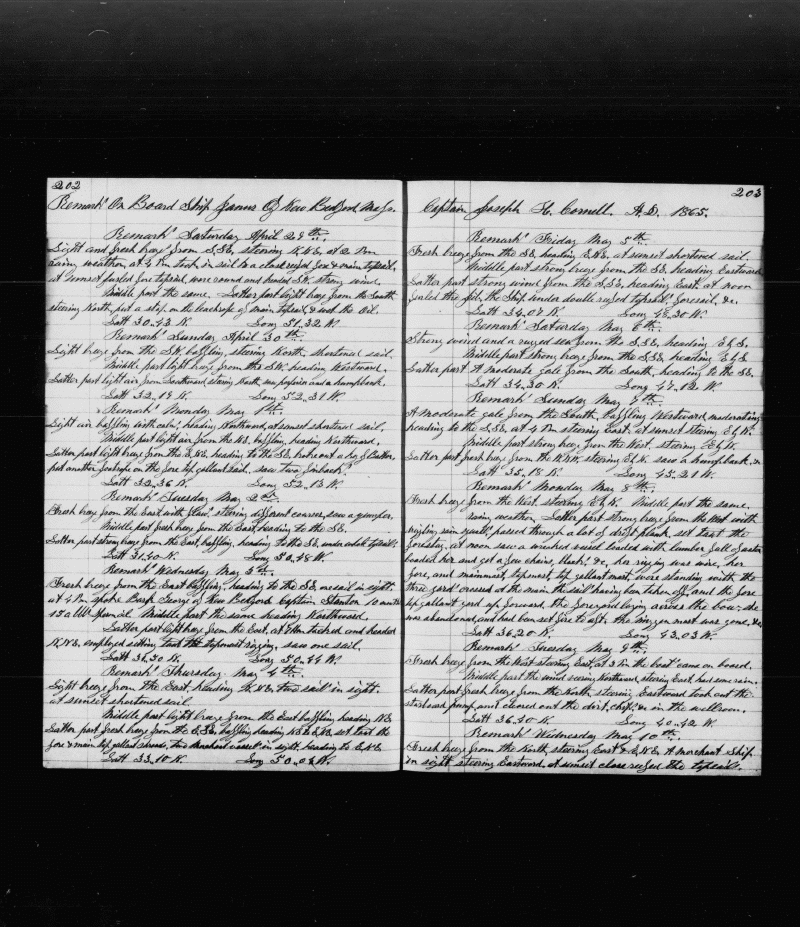 202
Remark's On Board Ship James Of New Bedford Mass.
Remark's Saturday April 29th.
Light and fresh breeze from S,SE, steering N.N.E, at 2 P.m
rainy weather, at 4 P.m took in sail to a close reefed fore & main topsail,
at sunset furled fore topsail, wore round and headed S.W, strong wind.
Middle part the same. Latter part light breeze from the South
steering North, put a strop on the leachrope of main topsail, & the Oil.
Latt 30.43 N. Long 51.32 W.
Remark's Sunday April 30th.
Light breeze from the S.W, baffling, steering North, shortened sail.
Middle part light breeze from the S.W. heading Westward.
Latter part light air from Southward steering North, saw porpoises and a humpback.
Latt 32.18 N. Long 52.31 W.
Remark's Monday May 1st.
Light air baffling with calm, heading Northward, at sunset shortened sail.
Middle part light air from the N.E. baffling, heading Northward.
Latter part light breeze from the E,N.E, heading to the SE,
put another footrope on the fore top gallant sail. saw two finback's.
Latt 32.36 N. Long 52.13 W.
Remark's Tuesday May 2nd.
Fresh breeze from the East, with flaw's, steering different courses, saw a grampus.
Middle part fresh breeze from the East, heading to the SE.
Latter part strong breeze from the East, baffling, heading to the SE, under whole topsail's.
Latt 31.40 N. Long 50.48 W.
Remark's Wednesday May 3rd.
Fresh breeze from the East baffling, heading to the SE, one sail in sight.
at 4 P.m spoke Bark of New Bedford Captain Stanton 10 months
150 bbls Sperm oil. Middle part the same heading Northward.
Latter part light breeze from the East, at 9 A.m tacked and headed
N.N.E, employed setting taut the topmast rigging, saw one sail.
Latt 31.30 N. Long 50.44 W.
Remark's Thursday May 4th.
Light breeze from the East, heading N.N.E, two sail's in sight.
at sunset shortened sail
Middle part light breeze from the East baffling, heading N.E.
Latter part fresh breeze from the E,SE, baffling, heading N.E & E.N.E, set taut the
fore & main top gallant shrouds, two merchant vessel's in sight, heading to E,N.E
Latt 33.10 N. Long 50.04 W.
203
Captain Joseph H. Cornell. A.D. 1865.
Remark's Friday May 5th.
Fresh breeze from the SE, heading E,N.E, at sunset shortened sail.
Middle part strong breeze from the SE, heading Eastward
Latter part strong wind from the S,SE, heading East, at noon
furled the jib, the Ship under double reefed topsail's, foresail, &c.
Latt 34.07 N. Long 48.30 W.
Remark's Saturday May 6th.
Strong wind and a rugged sea from the S,SE, heading E by S.
Middle part strong breeze from the S,SE, heading E by S
Latter part A moderate gale from the South, heading to the SE.
Latt 34.30 N. Long 47.12 W.
Remark's Sunday May 7th.
A moderate gale from the South, baffling Westward, moderating
heading to the S,SE, at 4 P.m steering East, at sunset steering E by N.
Middle part strong breeze from the West, steering E by N.
Latter part fresh breeze from the W.N.W, steering E by N, saw a humpback, &c
Latt 35.18 N. Long 45.21 W.
Remark's Monday May 8th.
Fresh breeze from the West, steering E by N. Middle part the same.
rainy weather. Latter part strong breeze from the West with
drizzling rain squall's, passed through a lot of drift plank, set taut the
forestay, at noon saw a wrecked vessel loaded with lumber full of water
boarded her and got a few chairs, block's, &c, her rigging was wire, her
fore, and mainmast, topmast, top gallant mast, were standing with the
three yard's crossed at the main the sail's having been taken off, and the fore
top gallant yard up forward, the foreyard laying across the bow: she
was abandoned, and had been set fire to aft. the mizzen mast was gone, &c,
Latt 36.20 N. Long 43.03 W.
Remark's Tuesday May 9th.
Fresh breeze from the West steering East, at 3 P.m the boat's came on board.
Middle part the wind veering Northward, steering East, had some rain.
Latter part fresh breeze from the North, steering Eastward took out the
starboard pump, and cleared out the dirt, chip's, &c in the wellroom.
Latt 36.30 N. Long 40.42 W.
Remark's Wednesday May 10th.
Fresh breeze from the North, steering East & E,N.E, A merchant Ship
in sight steering Eastward. At sunset close reefed the topsail's.